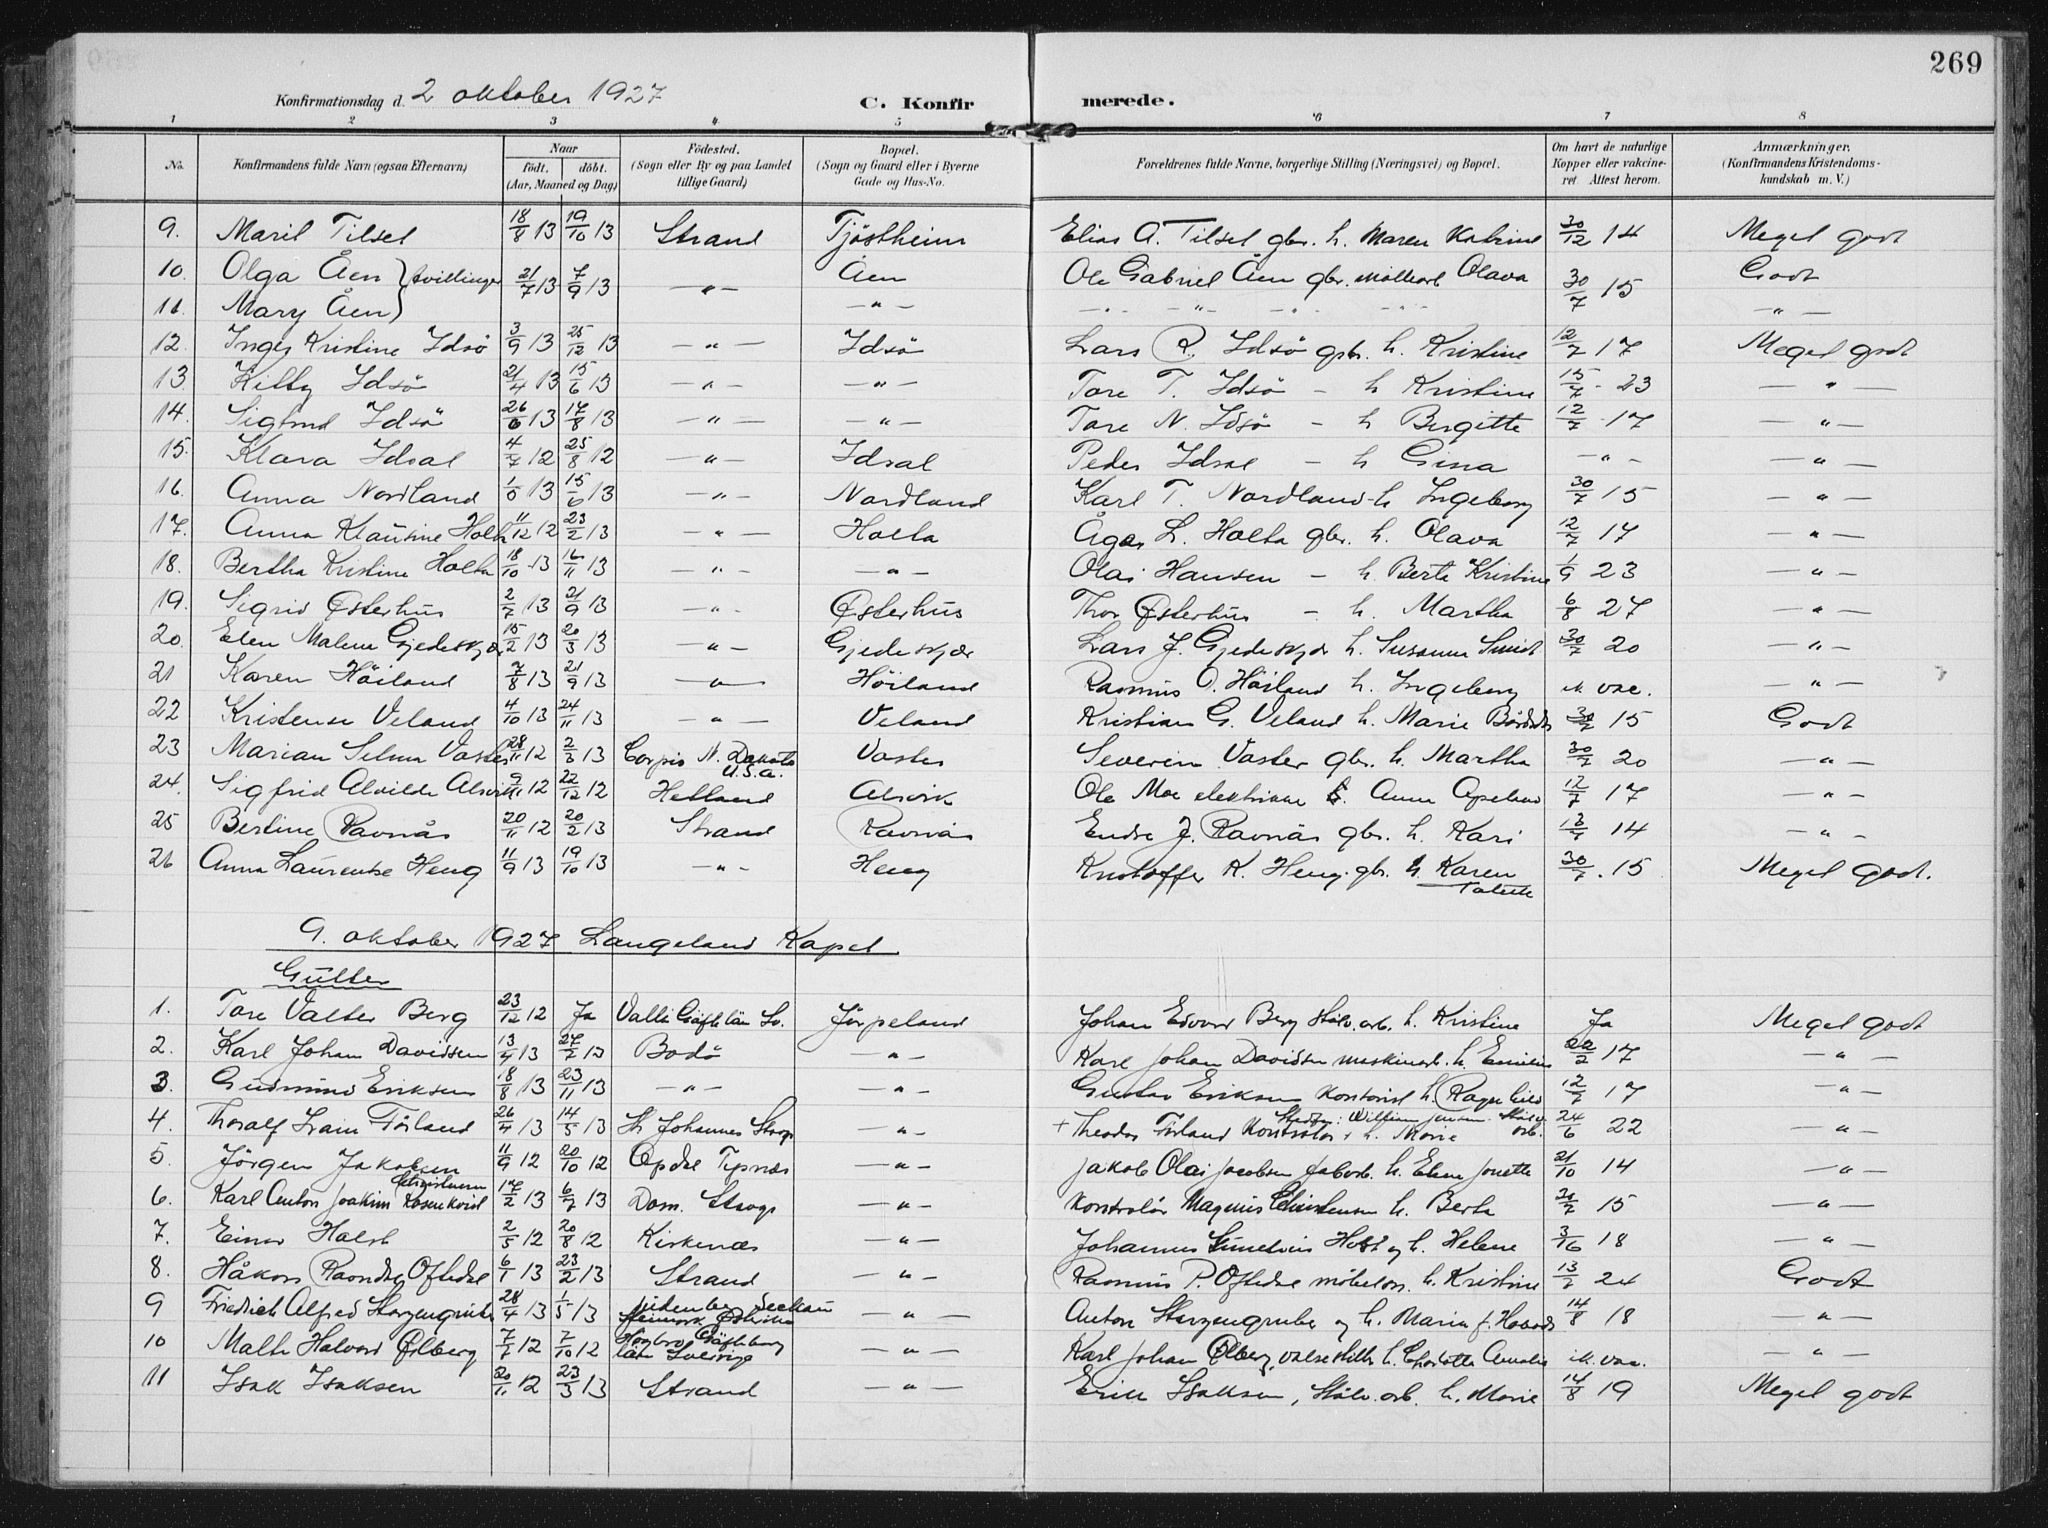 269
Konfirmationsdag d. 2 oktober 1927 C. Konfirmerede.
1 2 3 4 5 6 7 8
No. Konfirmandens fulde Navn (ogsaa Efternavn) Naar født. døbt. (Aar, Maaned og Dag) Fødested. (Sogn eller By og paa Landet tillige Gaard) Bopæl. (Sogn og Gaard eller i Byerne Gade og Hus-No. Forældrenes fulde Navne, borgerlige Stilling (Næringsvei) og Bopæl. Om havt de naturlige Kopper eller vakcineret. Attest herom. Anmærkninger. (Konfirmandens Kristendomskundskab m. V.)
9. Marit Tilset 18/8 13 19/10 13 Strand Tjøstheim Elias A. Tilset gbr. h. Maren Katrine 30/12 14 Meget godt
10. Olga Åen } tvillinger 21/7 13 7/9 13 —"— Åen Ole Gabriel Åen gbr. Olava 30/7 15 Godt
11. Mary Åen } —"— —"— —"— —"— —"— —"—
12. Inger Kristine Idsö 3/9 13 25/12 13 —"— Idsö Lars R. Idsö gbr. h. Kristine 12/7 17 Meget godt
13. Kitty Idsö 21/4 13 15/6 13 —"— —"— Tore T. Idsö – h Kristine 15/7 23 —"—
14. Sigfrid Idsö 26/6 13 17/8 13 —"— —"— Tore N. Idsö – h Birgitte 12/7 17 —"—
15. Klara Idsal 4/7 12 25/8 12 —"— Idsal Peder Idsal – h Gina —"— —"—
16. Anna Nordland 13 15/6 13 —"— Nordland Karl T. Nordland – h Ingeborg 30/7 15 —"—
17. Anna Klaütine Holta 11/12 12 23/2 13 —"— Holta L. Holta gbr. h. Olava 12/7 17 —"—
18. Bertha Kristine Holta 18/10 13 16/11 13 —"— —"— Olai Hansen – h. Berta Kristine 1/9 23 —"—
19. Sigrid Østerhus 2/7 13 21/9 13 —"— Østerhüs Thor Østerhüs – h. Martha 6/8 27 —"—
20. Elen Malene Gjedeskjær 15/2 13 20/3 13 —"— Gjedeskjær Lars J. Gjedeskjær h. Susanne Smidt 30/7 20 —"—
21 Karen Höiland 7/8 13 21/9 13 —"— Höiland Rasmus O. Höiland h. Ingeborg ik. vac. —"—
22 Kristense Veland 4/10 13 24/11 13 —"— Veland Kristian G. Veland h. Marie 30/7 15 Godt
23 Marian Selma Vaster 28/11 12 2/3 13 N. Dakota U.S.A. Vaster Severin Vaster gbr. h. Martha 30/7 20 —"—
24. Sigfrid Alvilde Alsvik 9/11 12 22/12 12 Hetland Alsvik Ole Moe elektriker h. Anna Apeland 12/7 17 —"—
25 Bertine Ravnås 20/11 12 20/2 13 Strand Ravnås Endre J. Ravnås gbr. h. Kari 13/7 14 —"—
26 Anna Laurentse Heng 11/9 13 19/10 13 —"— Heng Kristoffer K. Heng gbr. h Karen 30/7 15 Meget godt.
9. oktober 1927 Langeland Kapel
Gutter
1. Tore Valter Berg 23/12 12 Ja Valbo Gäfle län Sv. Jörpeland Johan Edvard Berg stålv.arb. h. Kristine Ja Meget godt
2. Karl Johan Davidsen 13/4 13 Bodö —"— Karl Johan Davidsen maskinarb. h. Emilie 22/2 17 —"—
3. Gudmund Eriksen 18/8 13 23/11 13 —"— —"— Gustav Eriksen kontorist h. Ragnhild 12/7 17 —"—
4. Thoralf Förland 26/4 13 14/5 13 St Johannes Stvgr —"— + Theodor Förland Kontrolör, h. Marie Stedf.: William Jensen stålv. arb. 24/6 22 —"—
5. Jörgen Jakobsen 11/9 12 20/10 12 —"— Jakob Olai Jacobsen fab.arb. h. Elene Jonette 21/10 14 —"—
6. Karl Anton Joakim Rosenkvist Christensen 17/2 13 6/7 13 Dom. Stvgr —"— Kontrolör Magnus Christensen h. Berta 15 —"—
7. Einar Holst 2/5 12 20/8 12 Kirkenæs —"— Johannes Holst og h. Helene 3/16 18 —"—
8. Håkon Oftedal 6/1 13 23/2 13 Strand —"— Rasmus P. Oftedal h. Kristine 13/7 24 Godt
9 Friedrich Alfred Starzengruber 28/4 13 1/5 13 Seckau Steiermark —"— Anton Starzengruber og h. Maria 14/8 18 —"—
10 Malte Halvard Ølberg 7/7 12 7/10 12 Högbro Gäfleborg län Sverige —"— Karl Johan Ølberg, h. Charlotte Amalie ik. vac. —"—
11 Isak Isaksen 20/11 12 23/3 13 Strand —"— Erik Isaksen, stålv.arb. h. Marie 14/8 19 Meget godt